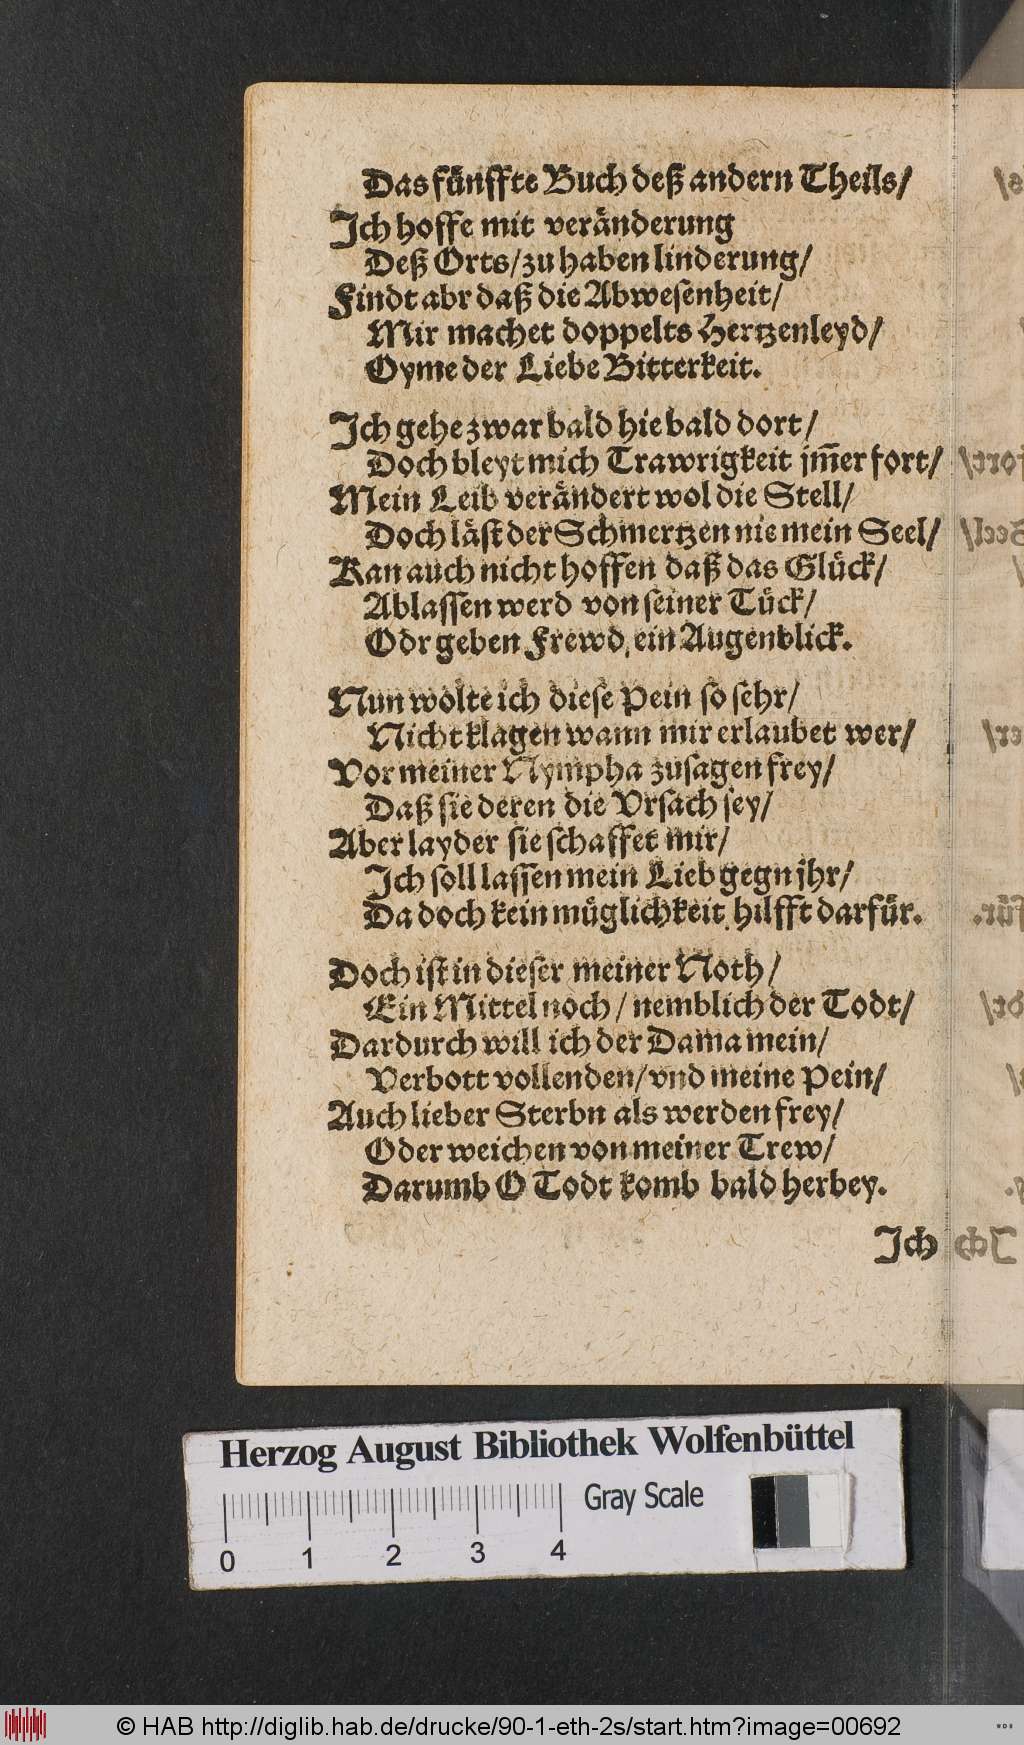 Das fünffte Buch deß andern Theils/
Ich hoffe mit veränderung
Deß Orts/zu haben linderung/
Findt abr daß die Abwesenheit/
Mir machet doppelts Hertzenleyd/
Oyme der Liebe Bitterkeit.
Ich gehe zwar bald hie bald dort/
Doch bleyt mich Trawrigkeit jm̃er fort/
Mein Leib verändert wol die Stell/
Doch läst der Schmertzen nie mein Seel/
Kan auch nicht hoffen daß das Glück/
Ablassen werd von seiner Tück/
Odr geben Frewd, ein Augenblick.
Nun wolte ich diese Pein so sehr/
Nicht klagen wann mir erlaubet wer/
Vor meiner Nympha zusagen frey/
Daß sie deren die Vrsach sey/
Aber layder sie schaffet mir/
Ich soll lassen mein Lieb gegn jhr/
Da doch kein müglichkeit hilfft darfür.
Doch ist in dieser meiner Noth/
Ein Mittel noch/ nemblich der Todt/
Dardurch will ich der Dama mein/
Verbott vollenden/vnd meine Pein/
Auch lieber Sterbn als werden frey/
Oder weichen von meiner Trew/
Darumb O Todt komb bald herbey.
Ich
Herzog August Bibliothek Wolfenbüttel
Gray Scale
0 1 2 3 4
© HAB http://diglib.hab.de/drucke/90-1-eth-2s/start.htm?image=00692